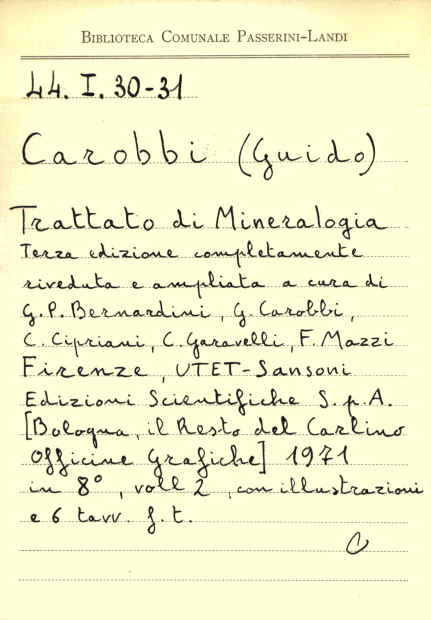 BIBLIOTECA COMUNALE PASSERINI-LANDI
44. I. 30-31
Carobbi (Guido)
Trattato di Mineralogia
Terza edizione completamente
riveduta e ampliata a cura di
G.P. Bernardini, G. Carobbi,
C. Cipriani, C. Garavelli, F. Mazzi
Firenze, UTET-Sansoni
Edizioni Scientifiche S.p.A.
[Bologna, il Resto del Carlino
Officine Grafiche] 1971
in 8°, voll 2, con illustrazioni
e 6 tavv. f.t.